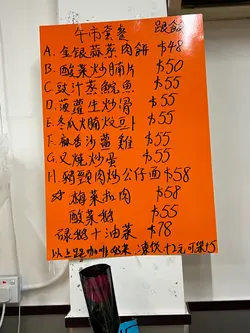 午市套餐 跟飯
A. 金銀蒜蒸肉餅 $48
B. 酸菜炒腩片 $50
C. 豉汁蒸鱿魚 $55
D. 菠蘿生炒骨 $55
E. 冬瓜火腩炆豆卜 $55
F. 麻香沙薑雞 $55
G. 叉燒炒蛋 $55
H. 豬頸肉炒公仔面 $58
梅菜扣肉 $58
酸菜鵝 $55
碌鵝+油菜 $78
以上跟咖啡奶茶 凍飲+3元